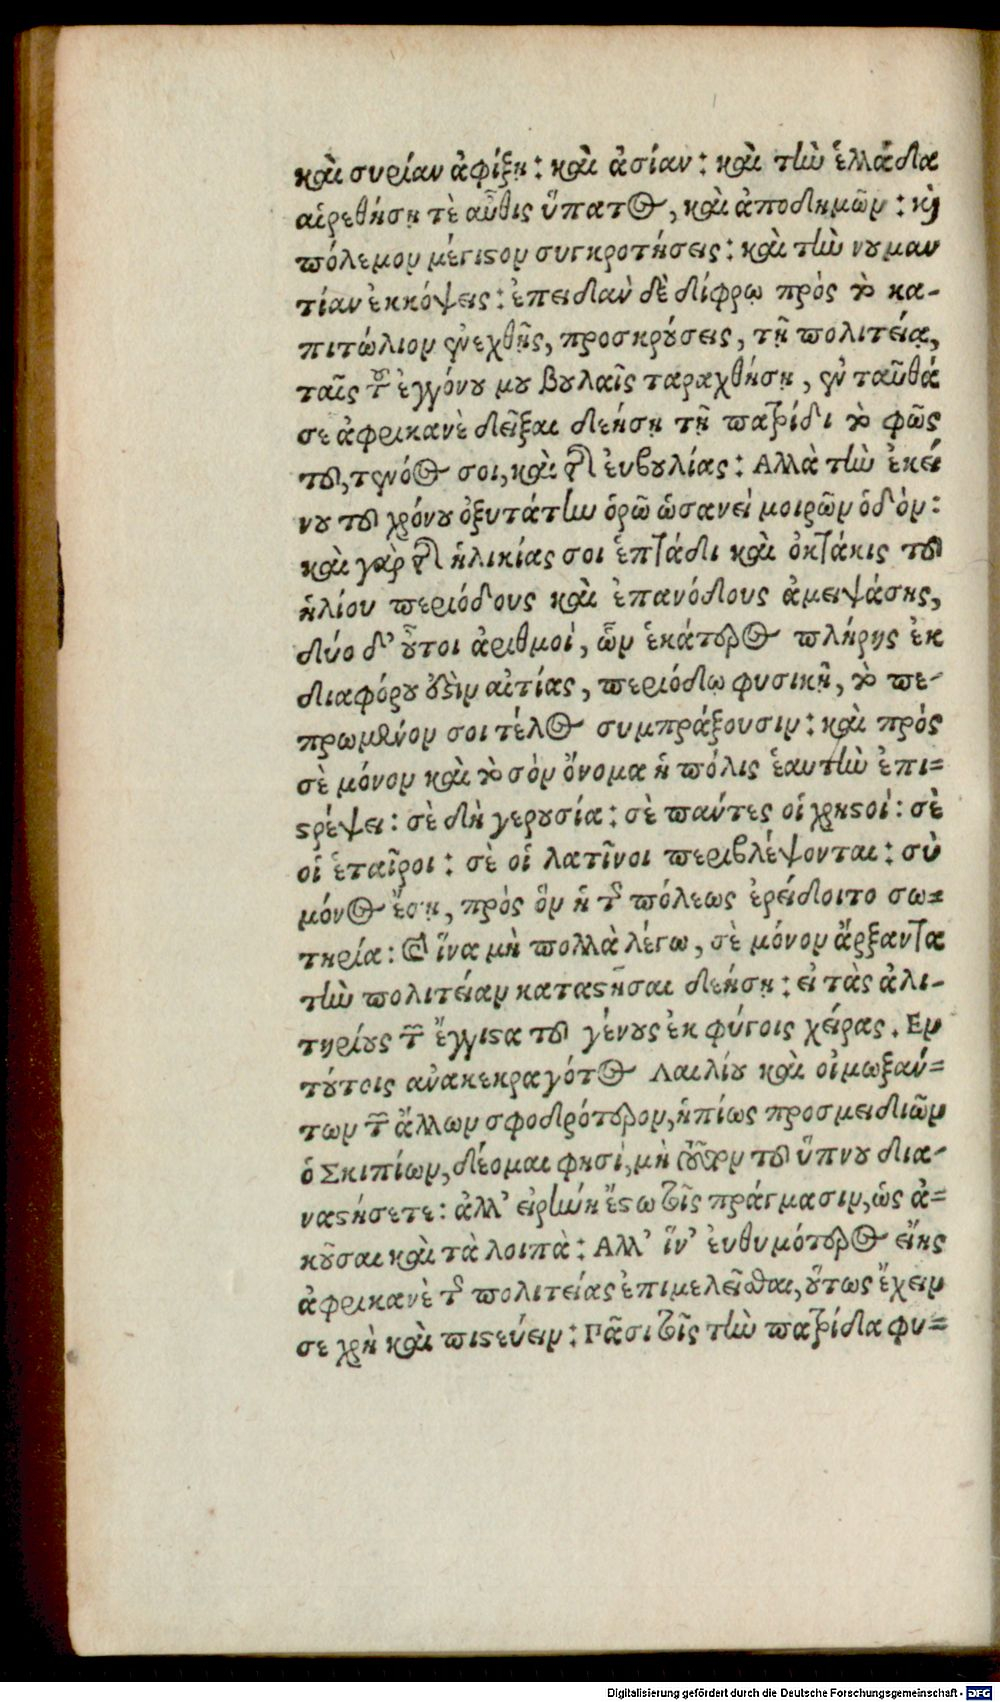 καὶ συρίαν ἀφίξῃ: καὶ ἀσίαν: καὶ τὴν ἑλλάδα
αἱρεθήσῃ τὲ αὖθις ὕπατος, καὶ ἀποδημῶν: καὶ
πόλεμον μέγιϛον συγκροτήσεις: καὶ τὴν νουμαν
τίαν ἐκκόψεις: ἐπειδὰν δὲ δίφρῳ πρὸς τὸ κα-
πιτώλιον ἐνεχθῇς, προσκρούσεις, τῇ πολιτείᾳ,
ταῖς τοῦ ἐγγόνου μου βουλαῖς ταραχθήσῃ, ἐνταῦθά
σε ἀφρικανὲ δεῖξαι δεήσῃ τῇ πατρίδι τὸ φῶς
τοῦ, γενός σοι, καὶ τῆς ἐυβουλίας: Αλλὰ τὴν ἐκεί
νου τοῦ χρόνου ὀξυτάτην ὁρῶ ὡσανεὶ μοιρῶν ὁδὸν:
καὶ γὰρ τῆς ἡλικίας σοι ἑπτάδι καὶ ὀκτάκις τοῦ
ἡλίου περιόδους καὶ ἐπανόδους ἀμειψάσης,
δύο δ' οὗτοι ἀριθμοὶ, ὧν ἑκάτερος πλήρης ἐκ
διαφόρου ἐϛὶν αἰτίας, περιόδῳ φυσικῇ, τὸ πε-
πρωμένον σοι τέλος συμπράξουσιν: καὶ πρὸς
σὲ μόνον καὶ τὸ σὸν ὄνομα ἡ πόλις ἑαυτὴν ἐπι=
ϛρέψει: σὲ δὴ γερουσία: σὲ πάντες οἱ χρηϛοὶ: σὲ
οἱ ἑταῖροι: σὲ οἱ λατῖνοι περιβλέψονται: σὺ
μόνος ἔσῃ, πρὸς ὃν ἡ τῆς πόλεως ἐρείδοιτο σω=
τηρία: καὶ ἵνα μὴ πολλὰ λέγω, σὲ μόνον ἄρξαντα
τὴν πολιτείαν καταϛῆσαι δεήσῃ: εἰ τὰς ἀλι-
τηρίους τῶν ἔγγιϛα τοῦ γένους ἐκφύγοις χείρας. Εν
τούτοις ἀνακεκραγότος Λαιλίου καὶ οἰμωξάν=
των τῶν ἄλλων σφοδρότερον, ἠπίως προσμειδιῶν
ὁ Σκιπίων, δέομαι φησὶ, μὴ οὖν τοῦ ὕπνου δια-
ναϛήσετε: ἀλλ' εἰρήνη ἔϛω τοῖς πράγμασιν, ὡς ἀ=
κοῦσαι καὶ τὰ λοιπὰ: Αλλ' ἵν' ἐυθυμότερος εἴης
ἀφρικανὲ τῆς πολιτείας ἐπιμελεῖσθαι, οὕτως ἔχειν
σε χρὴ καὶ πιϛεύειν: Πᾶσι τοῖς τὴν πατρίδα φυ=